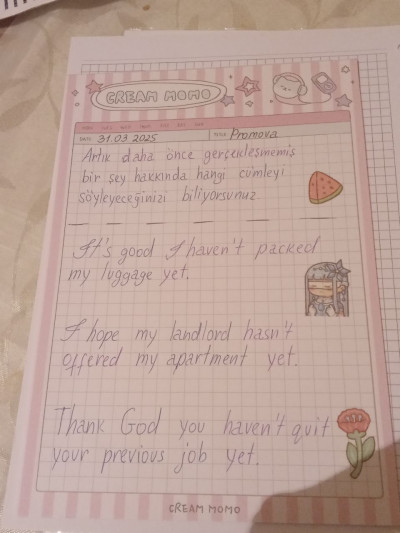 CREAM MOMO
DATE: 31.03.2025 TITLE: Promova
Artık daha önce gerçekleşmemiş
bir şey hakkında hangi cümleyi
söyleyeceğinizi biliyorsunuz.
It's good I haven't packed
my luggage yet.
I hope my landlord hasn't
offered my apartment yet.
Thank God you haven't quit
your previous job yet.
CREAM MOMO